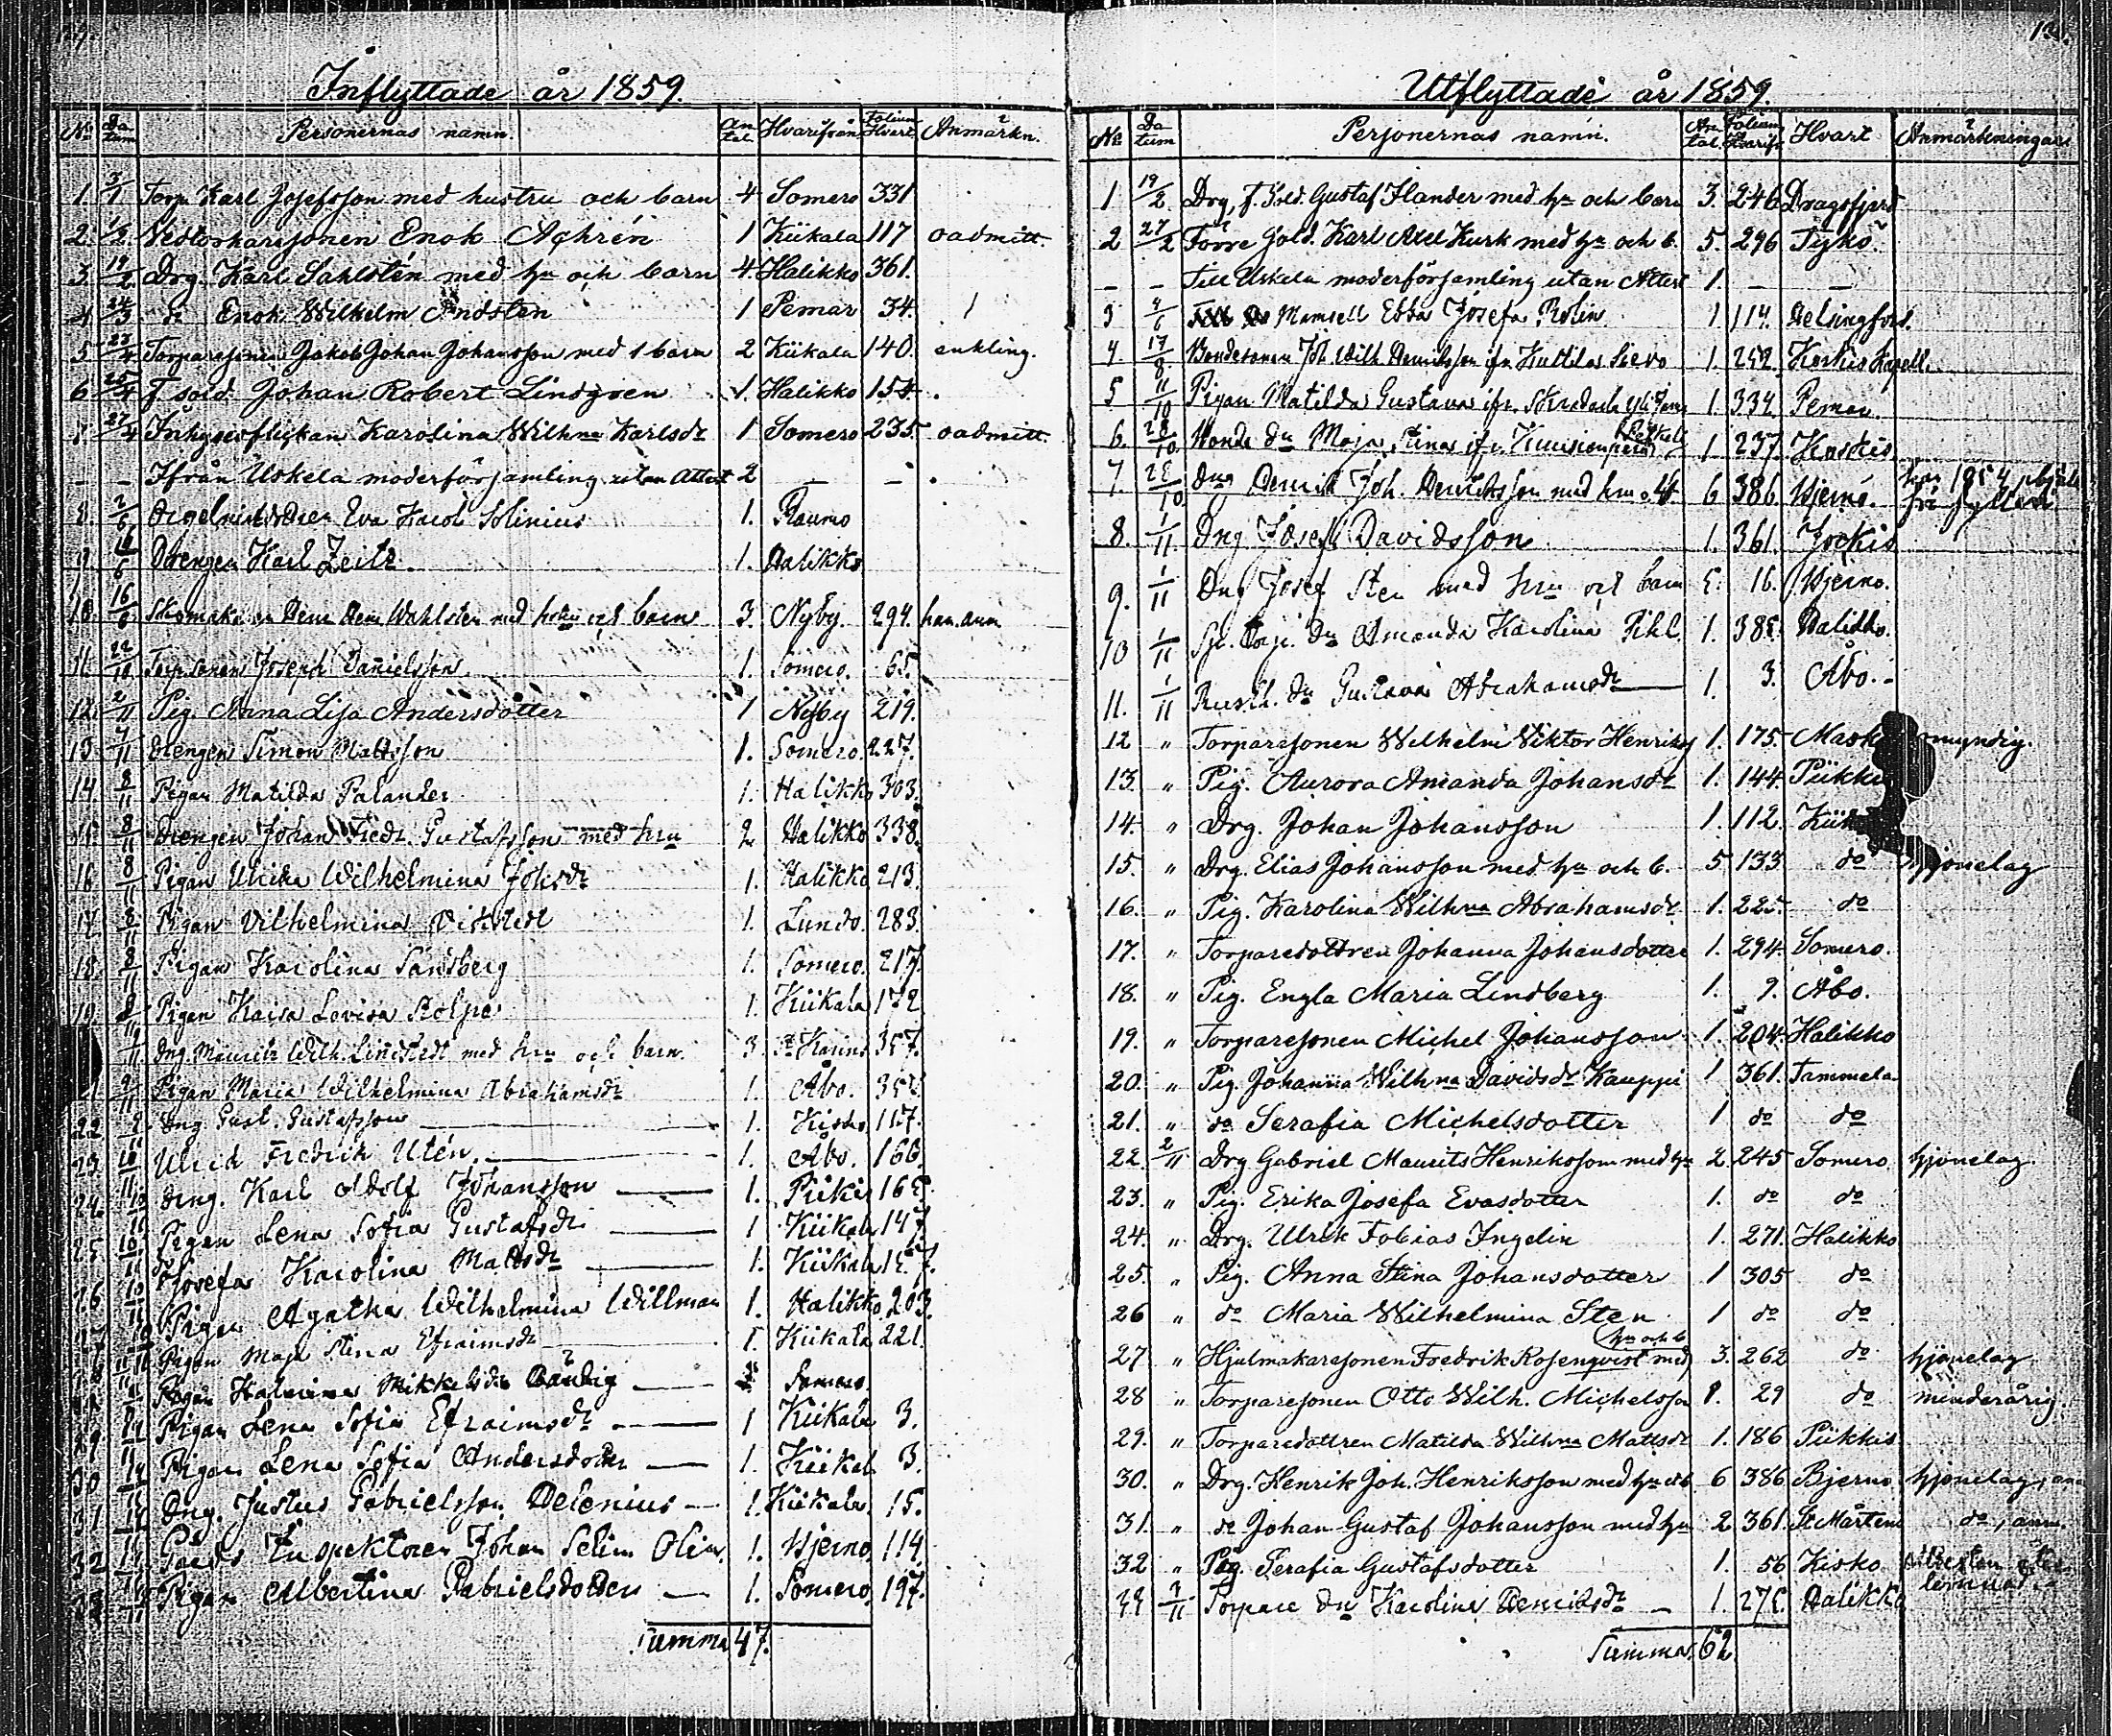 Inflyttade år 1859.
No Datum Personernas namn. Antal Hvarifrån Folium Hvart Anmärkn.
1. 3/1 Torp. Karl Josefsson med hustru och barn 4 Somero 331
2. 1/2 Nedtorkaresonen Enok Achrén 1 Kiikala 117 oadmitt.
3. 19/2 Drg. Karl Sahlstén med hu och barn 4. Halikko 361.
4 24/3 do Enok Wilhelm Lindsten 1 Pemar 34.
5 23/4 Torparesonen Jakob Johan Johansson med 1 barn 2 Kiikala 140. enkling.
6 25/4 f. sold. Johan Robert Lindgren 1. Halikko 154.
7. 27/4 Inhysesflickan Karolina Wilhna Karlsdr 1 Somero 235. oadmitt.
– – Ifrån Uskela moderförsamling utan Attest 2 – –
8. 2/6 Eva Karol. Solinius 1. Raumo
9. /6 Drengen Karl Zeitz. 1. Halikko
10. 16/ Skomakaren Wahlsten med hustru och barn 3. Nyby. 294.
11. 22/10 Torp.sonen Joseph Danielsson 1. Somero. 65.
12. 2/11 Pig. Anna Lisa Andersdotter 1 Nyby 219.
13 7/11 Drengen Simon Mattsson 1. Somero. 227.
14. 8/11 Pigan Matilda Palander 1. Halikko 303.
15. 8/11 Drengen Johan Fredr. Gustafsson med hru 2. Halikko 338.
16 8/11 Pigan Ulrika Wilhelmina Johsdr 1. Halikko 213.
17. 8/11 Pigan Vilhelmina 1. Lundo. 283.
18. 8/11 Pigan Karolina Sandberg 1. Somero. 217.
19. 8/11 Pigan Kaisa Lovisa Stolpe 1. Kiikala 172
/11. Dng. Mauritz Wilh. Lindstedt med hru och barn. 3. St Karins 357.
21 9/11 Pigan Maria Wilhelmina Abrahamsdr 1. Åbo. 352
22 9/11 Dng. Gust. Gustafsson 1. Kisko 117.
23. 10/11 Ulrik Fredrik Utén. 1. Åbo. 166.
24. 10/11 Dng. Karl Adolf Johansson 1. Piikis 165.
25. 10/11 Pigan Lena Sofia Gustafsdr 1 Kiikala 147.
26 10/11 Josefa Karolina Mattsdr 1. Kiikala
27 /11 Pigan Agatha Wilhelmina Willman 1. Halikko. 203.
Pigan Maja Stina Efraimsdr 1. Kiikala 221.
Pigan Mikkelsdr Somero.
29. Pigan Lena Sofia Efraimsdr 1 Kiikala 3.
30 Pigan Lena Sofia Andersdotter 1. Kiikala 3.
31 Dng. Justus Gabrielsson Helenius 1. Kiikala 15.
32 Inspektoren Johan Selim Olin. 1. Bjerno. 114.
33 /11 Pigan Albertina Gabrielsdotter 1. Somero. 197.
Summa 47.
Utflyttade år 1859.
No Datum Personernas namn. Antal. Folium Hvarifr. Hvart Anmärkningar
1 19/2 Drg, f. Sold. Gustaf Flander med hu och barn 3. 246 Dragsfjerd
2 27/2 Förre Sold. Karl Axel Kurk med hu och b. 5. 296 Tykö.
– – Till Uskela moderförsamling utan Attest 1. – –
3 /6 Mamsell Ebba Josefa Rolin 1 114. Helsingfors.
4. 17/8. Bondesonen Joh. Wilh. Henriksson ifr. Kuttila 1. 252. Koskis Kapell.
5 11/10 Pigan Matilda Gustava ifr. 1. 334. Pemar.
6. 28/10. Bonde dr Maja Stina ifr. 1 237. Koskis.
7. 28/10 Dng Henrik Joh. Henriksson med hru o. 4 b. 6 386. Bjerno.
8. 1/11. Dng Josef Davidsson 1. 361. Jockis
9. 1/11 Dng Josef Sten med hru och barn 5. 16. Bjerno.
10 1/11 dr Amanda Karolina Pihl. 1. 385. Halikko.
11. 1/11 Rusth. dr Gustava Abrahamsdr 1. 3. Åbo.
12 " Torparesonen Wilhelm Viktor Henriks. 1. 175. Mask myndig.
13. " Pig. Aurora Amanda Johansdr 1. 144. Piikki
14. " Drg. Johan Johansson 1. 112. Kiik
15. " Drg. Elias Johansson med hu och b. 5 133 do hjonelag
16. " Pig. Karolina Wilhna Abrahamsdr 1. 225. do
17. " Torparedottren Johanna Johansdotter 1. 294. Somero.
18. " Pig. Engla Maria Lindberg 1. 9. Åbo.
19. " Torparesonen Michel Johansson 1. 204. Halikko
20. " Pig. Johanna Wilhna Davidsdr Kauppi 1 361. Tammela
21. " do Serafia Michelsdotter 1 do do
22. 2/11 Drg Gabriel Maurits Henriksson med hu 2 245 Somero hjonelag
23. " Pig. Erika Josefa Evasdotter 1. do do
24. " Drg. Ulrik Tobias Ingelin 1. 271. Halikko
25. " Pig. Anna Stina Johansdotter 1 305 do
26 " do Maria Wilhelmina Sten 1 do do
27 " Hjulmakaresonen Fredrik Rosenqvist med hu och b 3. 262 do hjonelag
28 " Torparesonen Otto Wilh. Michelsson 1. 29 do minderårig.
29. " Torparedottren Matilda Wilhna Mattsdr 1. 186 Piikkis
30. " Drg. Henrik Joh. Henriksson med hu o b 6 386 Bjerno hjonelag, an
31. " do Johan Gustaf Johansson med hu 2. 361. St Mårtens do, anm.
32 " Pig. Serafia Gustafsdotter 1. 56 Kisko
33 /11 Torpare dr Karolina Henriksdr 1. 275. Halikko
Summa. 62